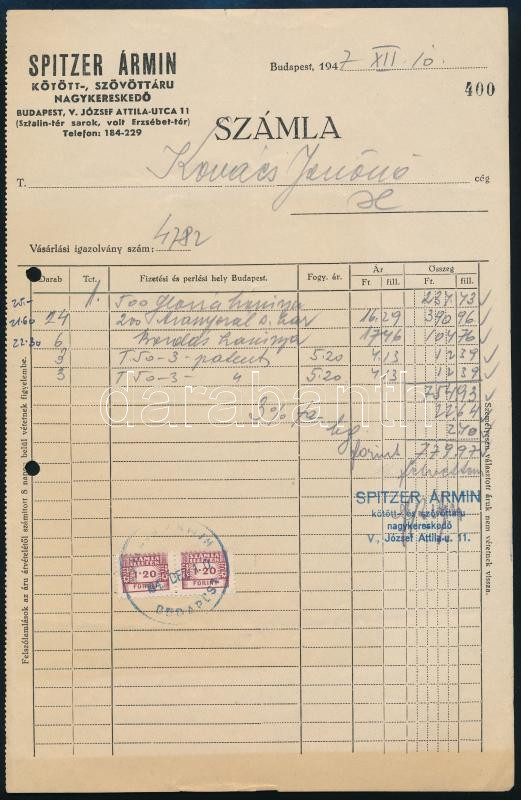 SPITZER ÁRMIN
KÖTÖTT-, SZÖVÖTTÁRU
NAGYKERESKEDŐ
BUDAPEST, V. JÓZSEF ATTILA-UTCA 11
(Sztalin-tér sarok, volt Erzsébet-tér)
Telefon: 184-229
Budapest, 1947 XII. 10.
400
SZÁMLA
T. Kovács Jenőné cég
Vásárlási igazolvány szám: 4782
Darab Tct. Fizetési és perlési hely Budapest. Fogy. ár. Ár Összeg
Ft. fill. Ft. fill.
25.- 1. 500 237 43
21.60 24 200 16.29 390 96
22.30 6 Bordás 17 46 104 76
3 T 50-3- patent 5.20 4.13 12 39
3 T 50-3- " 5.20 4.13 12 39
754 93
3% fa. 22 64
2 40
forint 779 97
SPITZER ÁRMIN
kötött- és szövöttáru
nagykereskedő
V., József Attila-u. 11.
SZÁMLA ILLETÉK SZÁMLA ILLETÉK
1·20 1·20
FORINT FORINT
BUDAPEST
Felszólamlások az áru átvételétől számított 8 napon belül vétetnek figyelembe.
Személyesen választott áruk nem vétetnek vissza.
darabanth